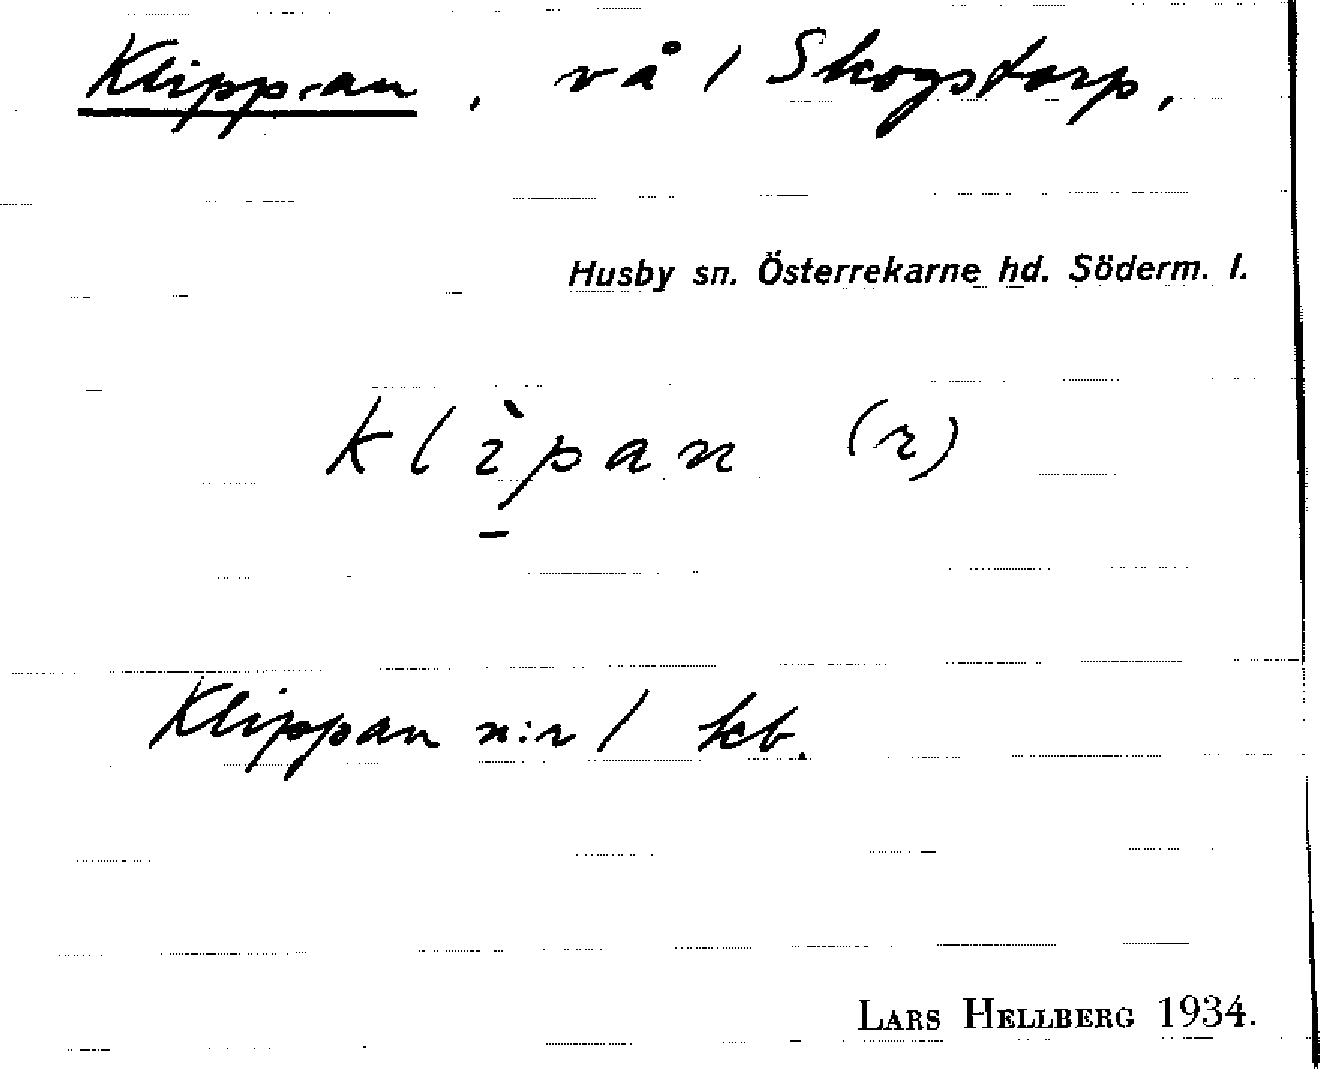 Klippan, vå / Skogstorp,
Husby sn. Österrekarne hd. Söderm. l.
klìpan (r)
Klippan n:r / kb.
LARS HELLBERG 1934.